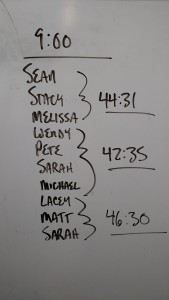 9:00
SEAN
STACY
MELISSA
44:31
WENDY
PETE
SARAH
MICHAEL
42:35
LACEY
MATT
SARAH
46:30